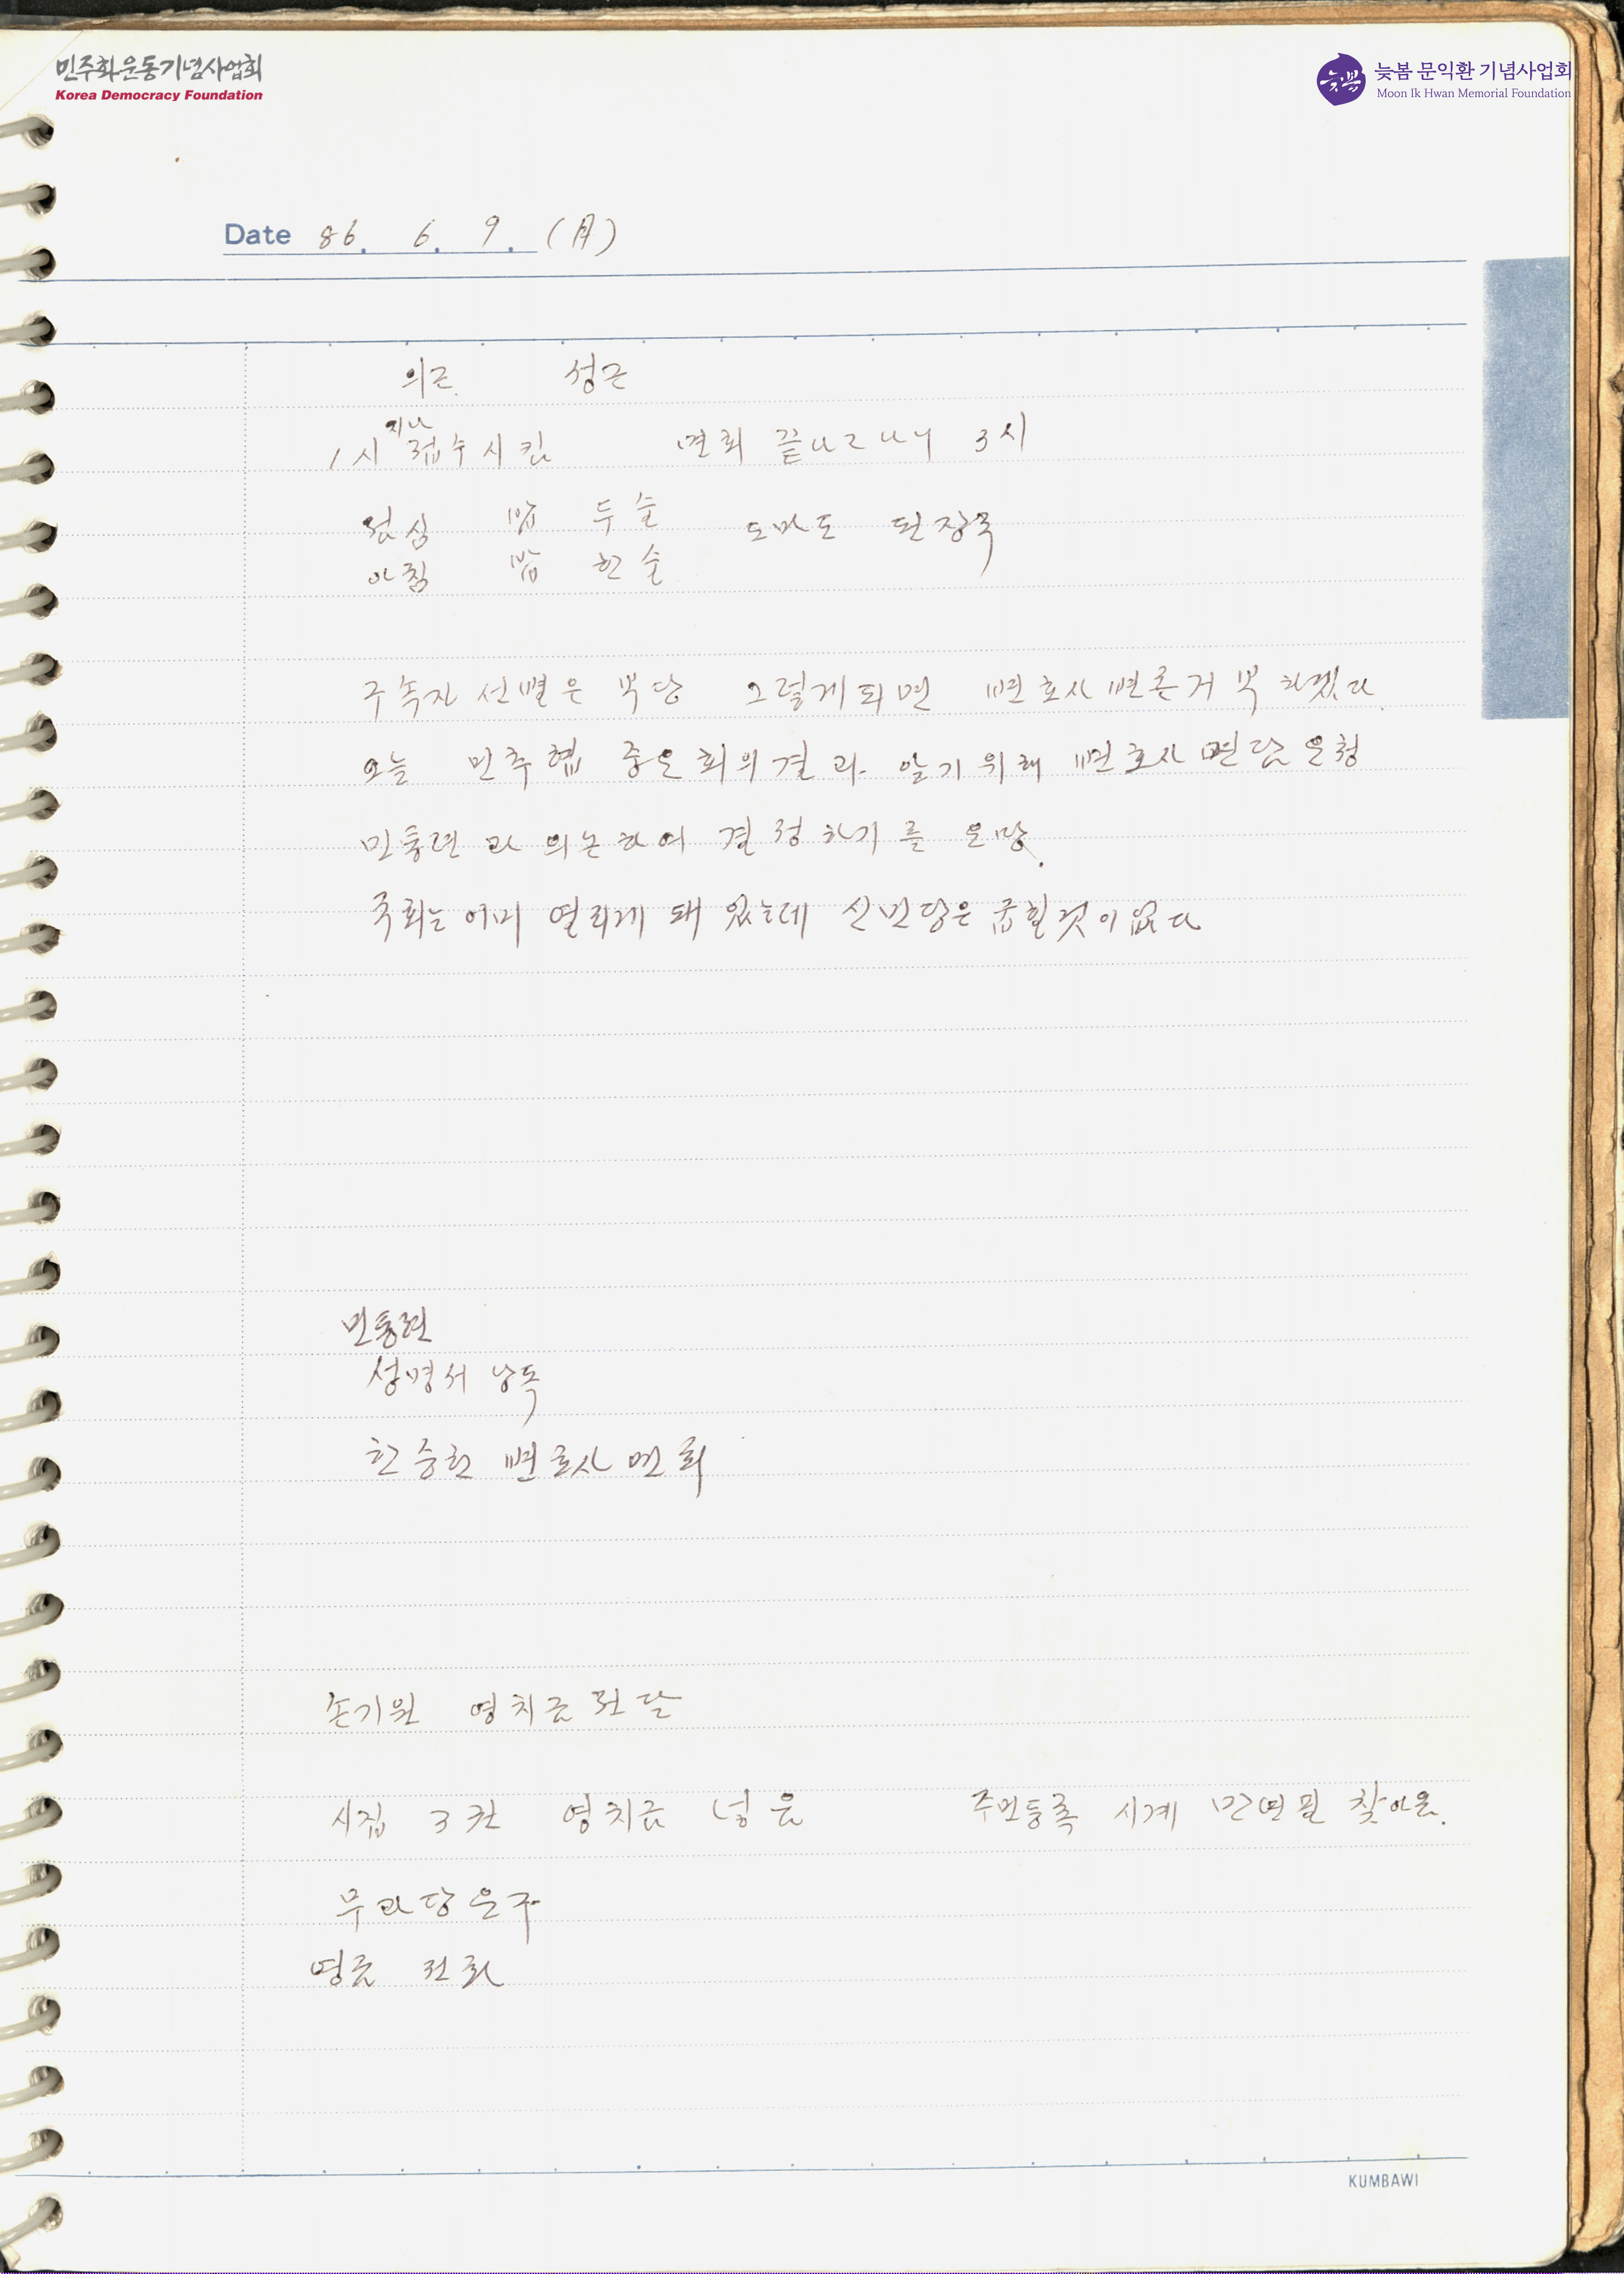 민주화운동기념사업회
Korea Democracy Foundation
늦봄 문익환 기념사업회
Moon Ik Hwan Memorial Foundation
늦봄
Date 86. 6. 9. (月)
의근 성근
지나
1시 접수시킴 면회 끝나고나니 3시
점심 밥 두술 도마도 된장국
아침 밥 한술
구속자 선별은 부당 그렇게되면 변호사 변론거부 하겠다.
오늘 민추협 중요회의결과 알기위해 변호사 면담 요청
민통련과 의논하여 결정하기를 요망.
국회는 어짜피 열리게 돼 있는데 신민당은 굽힐것이 없다
민통련
성명서 낭독
한승헌 변호사 면회
손기원 영치금전달
시집 3권 영치금 넣음 주민등록 시계 만년필 찾아옴.
무과당요구
영금 전화
KUMBAWI